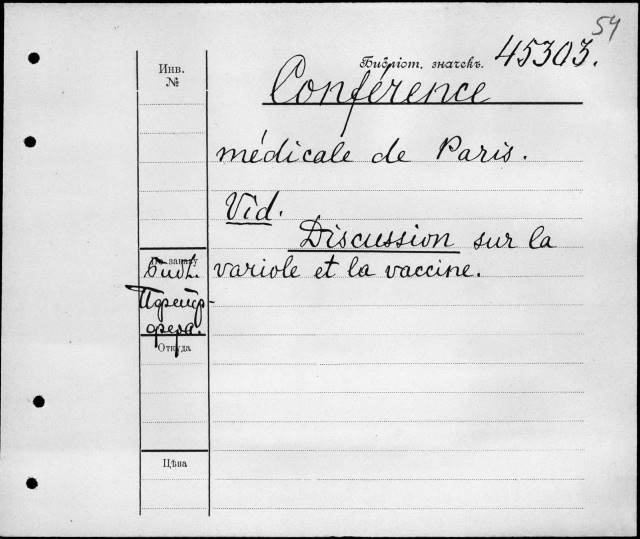 54
Библіот. значекъ. 45303.
Инв.
№
Conférence
médicale de Paris.
Vid.
Discussion sur la
variole et la vaccine.
По заказу
Библ.
Откуда
Цѣна